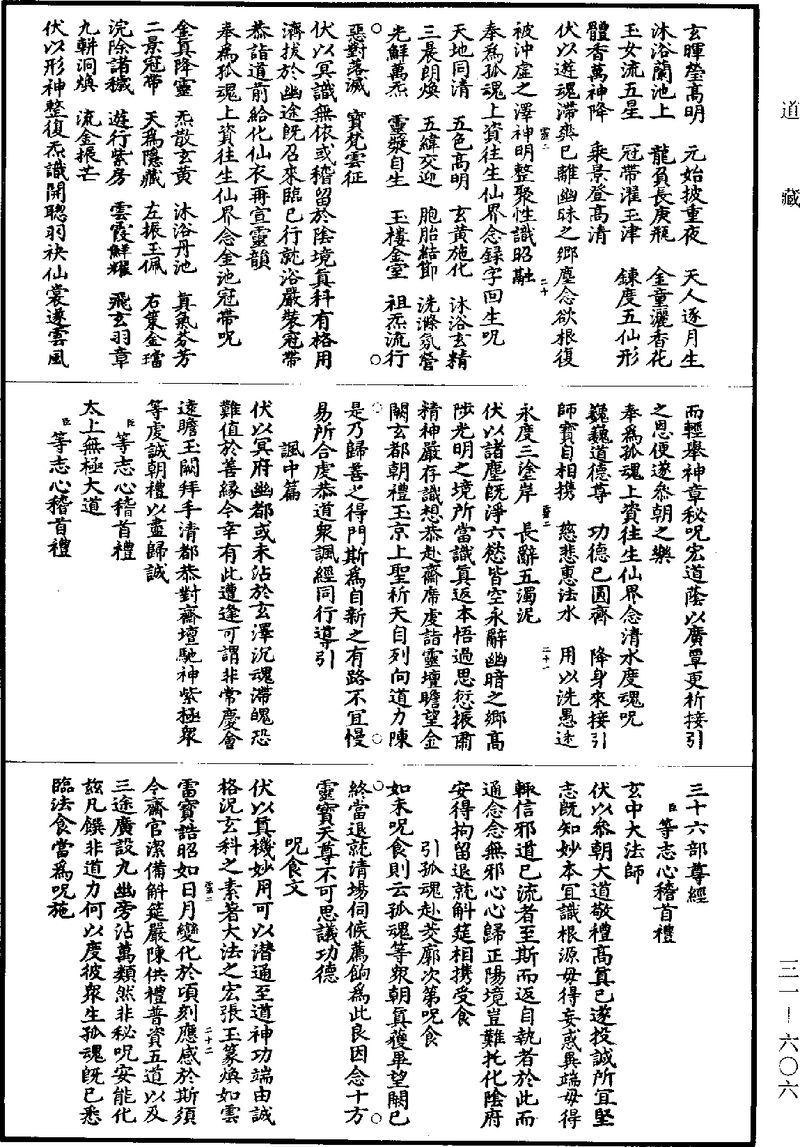 道藏
玄暉瑩高明　元始披重夜　天人逐月生
沐浴蘭池上　龍負長庚瓶　金童灑香花
玉女流五星　冠帶濯玉津　鍊度五仙形
體香萬神降　乘景登高清
伏以遊魂滯爽已離幽昧之鄉塵念欲根復
被沖虛之澤神明整聚性識昭融
奉為孤魂上資往生仙界念錄字回生呪
天地同清　五色高明　玄黃施化　沐浴玄精
三晨朗煥　五緯交迎　胞胎結節　洗滌氛營
光鮮萬炁　靈漿自生　玉樓金室　祖炁流行
惡對落滅　寶梵雲征
伏以冥識無依或稽留於陰境真科有格用
濟拔於幽途既召來臨已行就浴嚴裝冠帶
恭詣道前給化仙衣再宣靈韻
奉為孤魂上資往生仙界念金池冠帶呪
金真降靈　炁散玄黃　沐浴丹池　真氣芬芳
二景冠帶　天為隱藏　左振玉佩　右策金璫
浣除諸穢　遊行紫房　雲霞鮮耀　飛玄羽章
九軿洞煥　流金振芒
伏以形神整復炁識開聰羽袂仙裳遂雲風
而輕舉神章秘呪宏道蔭以廣覃更祈接引
之恩便遂叅朝之樂
奉為孤魂上資往生仙界念清水度魂呪
巍巍道德尊　功德已圓齊　降身來接引
師寶自相携　慈悲惠法水　用以洗愚迷
永度三塗岸　長辭五濁泥
伏以諸塵既淨六慾皆空永辭幽暗之鄉高
陟光明之境所當識真返本悟過思愆振肅
精神嚴存識想恭赴齋席虔詣靈壇瞻望金
闕玄都朝禮玉京上聖祈天自列向道力陳
是乃歸善之得門斯為自新之有路不宜慢
易所合虔恭道衆諷經同行導引
諷中篇
伏以冥府幽都或未沾於玄澤沉魂滯魄恐
難值於善緣今幸有此遭逢可謂非常慶會
遠瞻玉闕拜手清都恭對齋壇馳神紫極衆
等虔誠朝禮以盡歸誠
臣等志心稽首禮
太上無極大道
臣等志心稽首禮
三十六部尊經
臣等志心稽首禮
玄中大法師
伏以叅朝大道敬禮高真已遂投誠所宜堅
志既知妙本宜識根源毋得妄惑異端毋得
輒信邪道已流者至斯而返自執者於此而
通念念無邪心心歸正陽境豈難托化陰府
安得拘留退就斛筵相携受食
引孤魂赴茭廓次第呪食
如未呪食則云孤魂等衆朝真獲畢望闕已
終當退就清場伺候薦餉為此良因念十方
靈寶天尊不可思議功德
呪食文
伏以真機妙用可以潛通至道神功端由誠
格況玄科之素著大法之宏張玉篆煥如雲
雷寶誥昭如日月變化於頃刻應感於斯須
今齋官潔備斛筵嚴陳供禮普資五道以及
三途廣設九幽旁沾萬類然非秘呪安能化
玆凡饌非道力何以度彼衆生孤魂既已悉
臨法食當為呪施
三一—六〇六